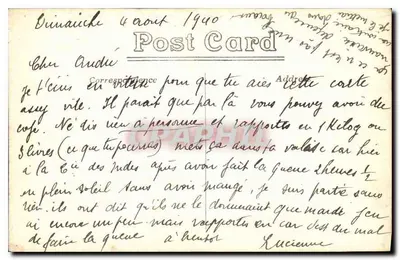 Dimanche 4 aout 1940
Post Card
Correspondence
Address
Cher André
je t'écris en vitesse pour que tu aies cette carte
assez vite. Il parait que par là vous pouvez avoir du
café. Ne dis rien à personne et rapportes en 1 Kilog ou
3 livres (ce que tu pourras) mets ça dans ta valise car hier
à la Cie des Indes après avoir fait la queue 2 heures 1/2
en plein soleil sans avoir mangé, je suis partie sans
rien. ils ont dit qu'ils ne le donnaient que mardi j'en
ai encore un peu mais rapportes en car c'est du mal
de faire la queue à bientot
Lucienne